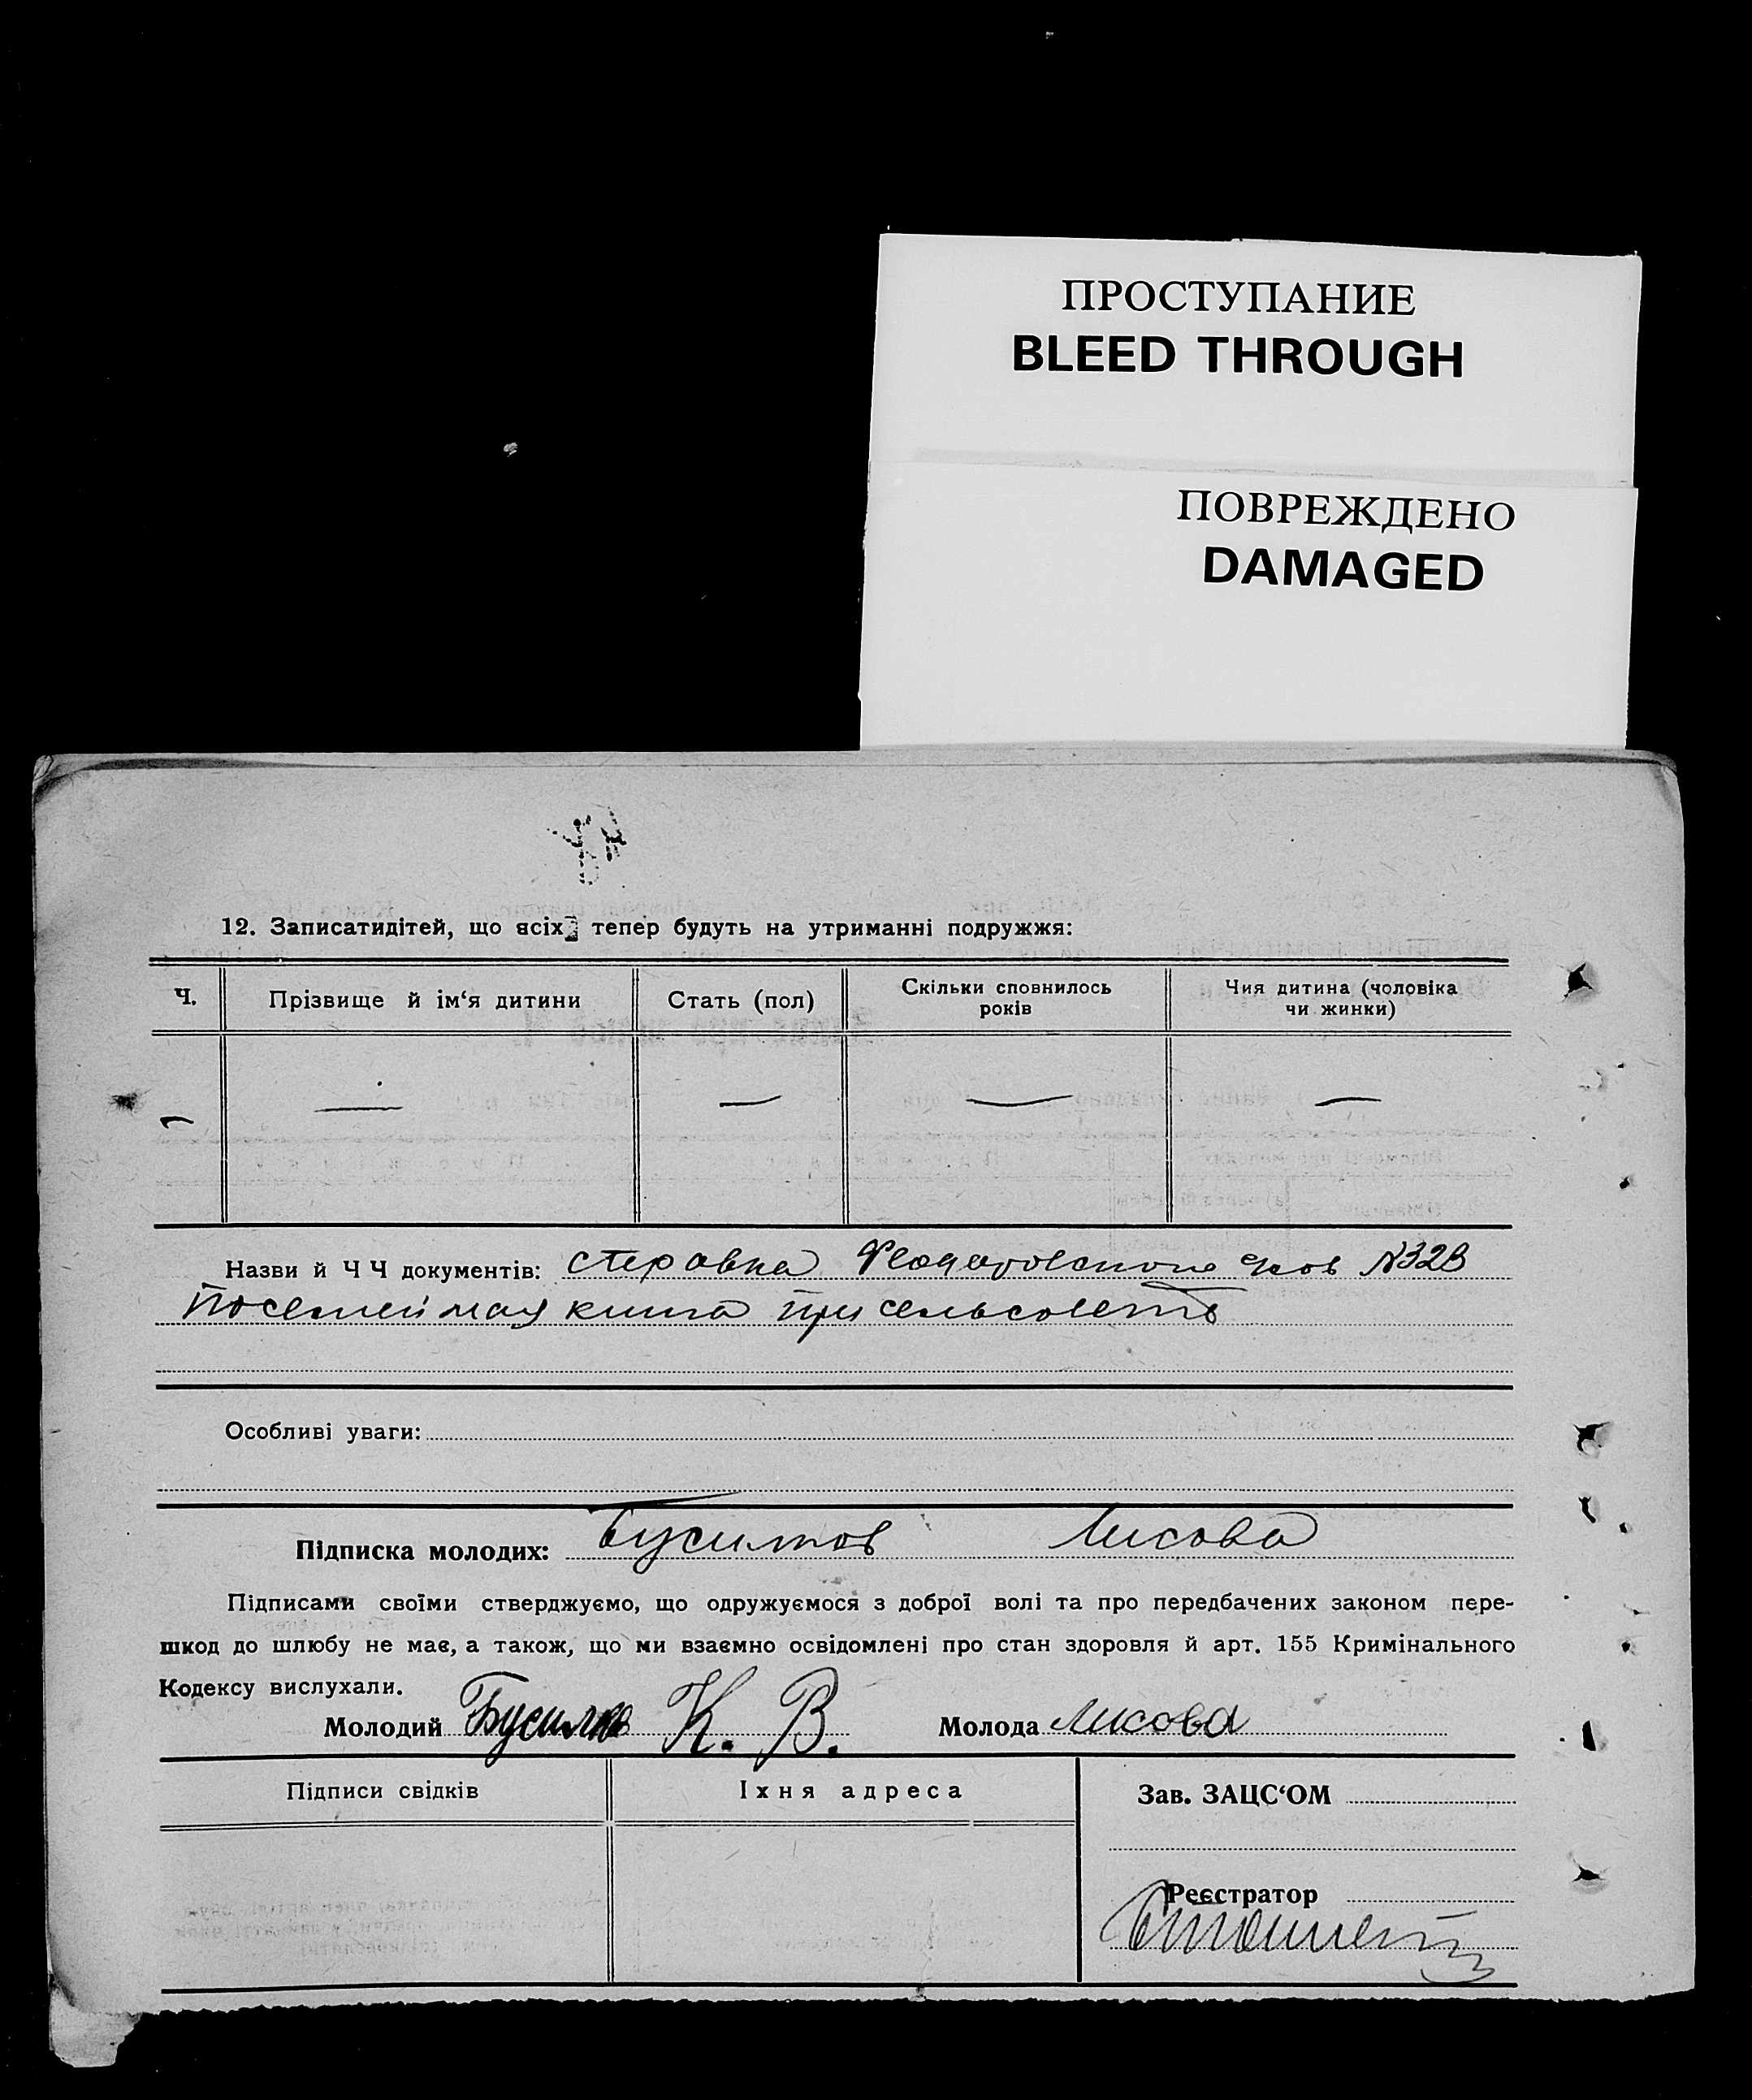 ПРОСТУПАНИЕ
BLEED THROUGH
ПОВРЕЖДЕНО
DAMAGED
12. Записатидітей, що всіх тепер будуть на утриманні подружжя:
Ч. Прізвище й ім‘я дитини Стать (пол) Скільки сповнилось років Чия дитина (чоловіка чи жинки)
— — — — —
Назви й Ч Ч документів: справка №328
Посемейная книга при сельсовете
Особливі уваги:
Підписка молодих: Бусилов Лисова
Підписами своїми стверджуємо, що одружуємося з доброї волі та про передбачених законом пере-
шкод до шлюбу не має, а також, що ми взаємно освідомлені про стан здоровля й арт. 155 Кримінального
Кодексу вислухали.
Молодий К. В. Молода Лисова
Підписи свідків Іхня адреса Зав. ЗАЦС‘ОМ
Реєстратор